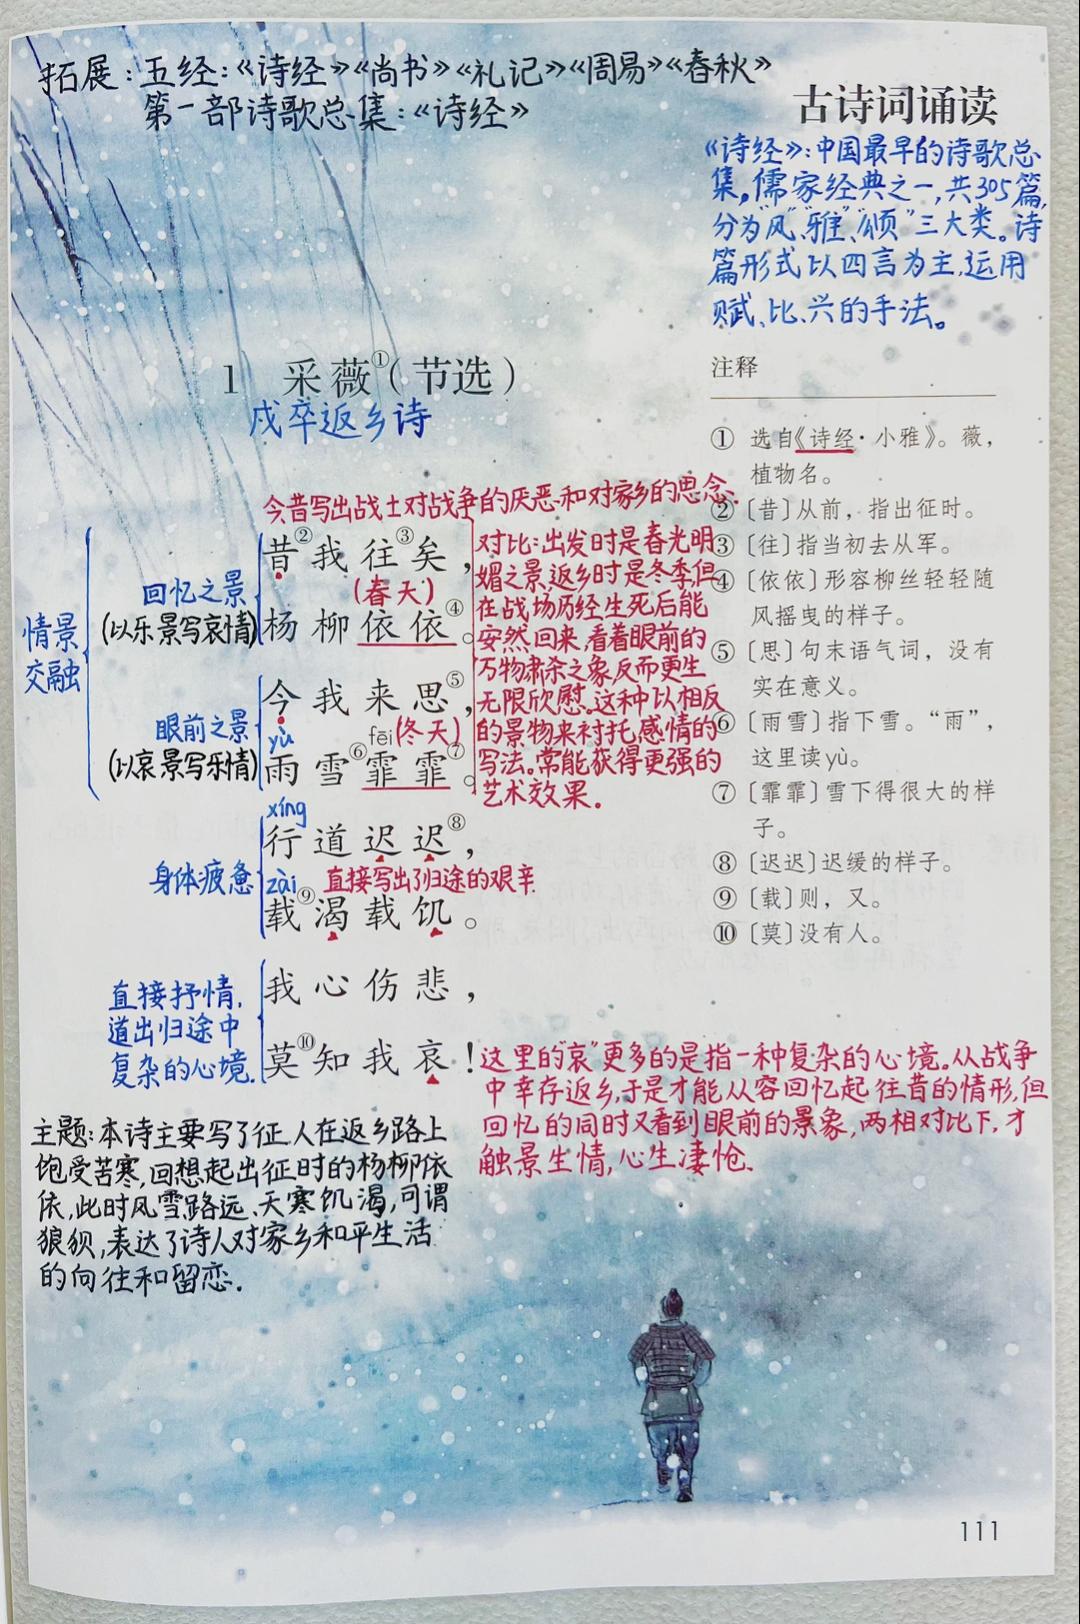 拓展：五经：《诗经》《尚书》《礼记》《周易》《春秋》
第一部诗歌总集：《诗经》
古诗词诵读
《诗经》：中国最早的诗歌总
集。儒家经典之一，共305篇，
分为"风"、"雅"、"颂"三大类。诗
篇形式以四言为主，运用
赋、比、兴的手法。
1 采薇①（节选）
戍卒返乡诗
今昔写出战士对战争的厌恶和对家乡的思念.
情景
交融
回忆之景
(以乐景写哀情)
昔②我往③矣，
(春天)
杨柳依依④。
眼前之景
(以哀景写乐情)
今我来思⑤，
yù
fēi(冬天)
雨雪⑥霏霏⑦。
对比：出发时是春光明
媚之景，返乡时是冬季，但
在战场历经生死后能
安然回来，看着眼前的
万物肃杀之象反而更生
无限欣慰。这种以相反
的景物来衬托感情的
写法。常能获得更强的
艺术效果.
xíng
行道迟迟⑧，
身体疲惫
zài
直接写出了归途的艰辛.
载⑨渴载饥。
直接抒情，
道出归途中
复杂的心境.
我心伤悲，
莫⑩知我哀！
这里的"哀"更多的是指一种复杂的心境。从战争
中幸存返乡，于是才能从容回忆起往昔的情形，但
回忆的同时又看到眼前的景象，两相对比下，才
触景生情，心生凄怆.
主题：本诗主要写了征人在返乡路上
饱受苦寒，回想起出征时的杨柳依
依，此时风雪路远、天寒饥渴，可谓
狼狈，表达了诗人对家乡和平生活
的向往和留恋.
注释
① 选自《诗经·小雅》。薇，
植物名。
②〔昔〕从前，指出征时。
③〔往〕指当初去从军。
④〔依依〕形容柳丝轻轻随
风摇曳的样子。
⑤〔思〕句末语气词，没有
实在意义。
⑥〔雨雪〕指下雪。“雨”，
这里读yù。
⑦〔霏霏〕雪下得很大的样
子。
⑧〔迟迟〕迟缓的样子。
⑨〔载〕则，又。
⑩〔莫〕没有人。
111